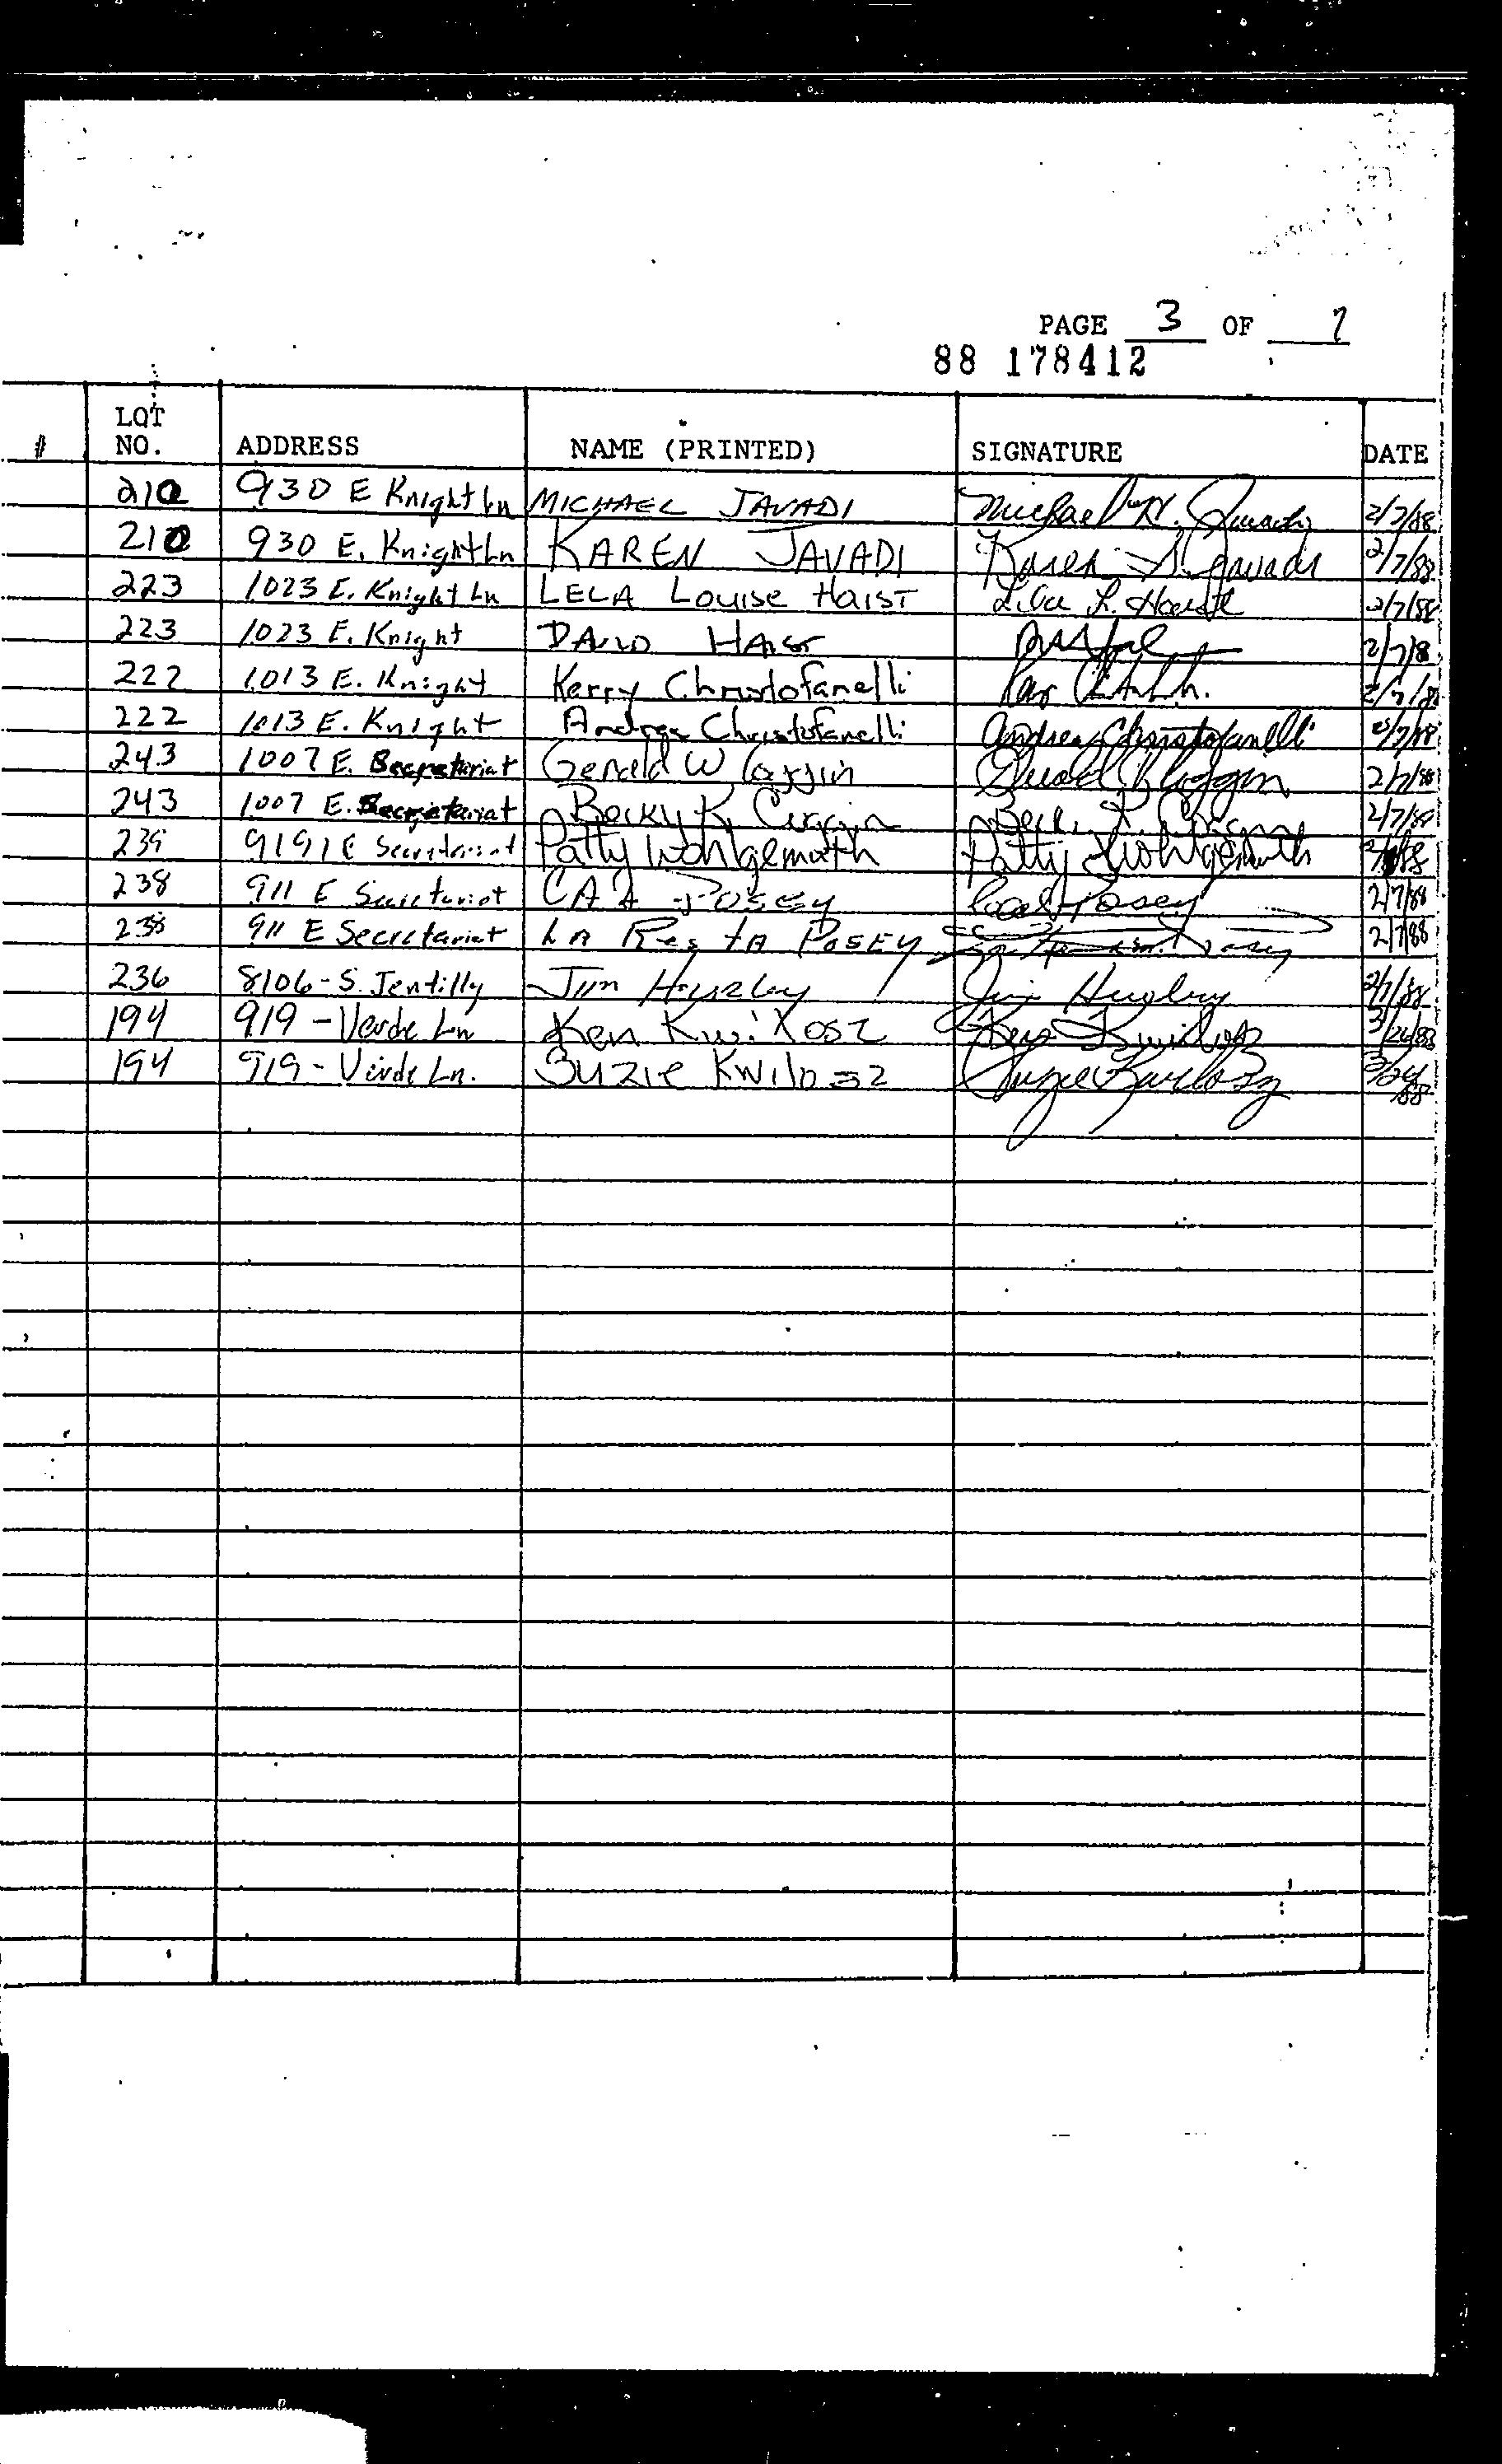 PAGE 3 OF 7
88 178412
# LOT NO. ADDRESS NAME (PRINTED) SIGNATURE DATE
210 930 E Knight Ln MICHAEL JAVADI Michael 2/7/88
210 930 E. Knight Ln KAREN JAVADI Karen S. Javadi 2/7/88
223 1023 E. Knight Ln LELA LOUISE HAIST Lela L. Haist 2/7/88
223 1023 E. Knight DAVID HAIST 2/7/8
222 1013 E. Knight Kerry Christofanelli 2/7/88
222 1013 E. Knight Andrea Christofanelli Andrea Christofanelli 2/7/88
243 1007 E. Secretariat Gerald W 2/7/88
243 1007 E. Secretariat Becky K. 2/7/88
239 919 E Secretariat Patty Wohlgemuth Patty Wohlgemuth
238 911 E Secretariat Posey Posey 2/7/88
238 911 E Secretariat POSEY Posey 2/7/88
236 8106 - S. Jentilly Jim Huxley Jim 2/7/88
194 919 - Verde Ln Ken Ken
194 919 - Verde Ln. Suzie Kwilosz Suzie Kwilosz 3/24/88